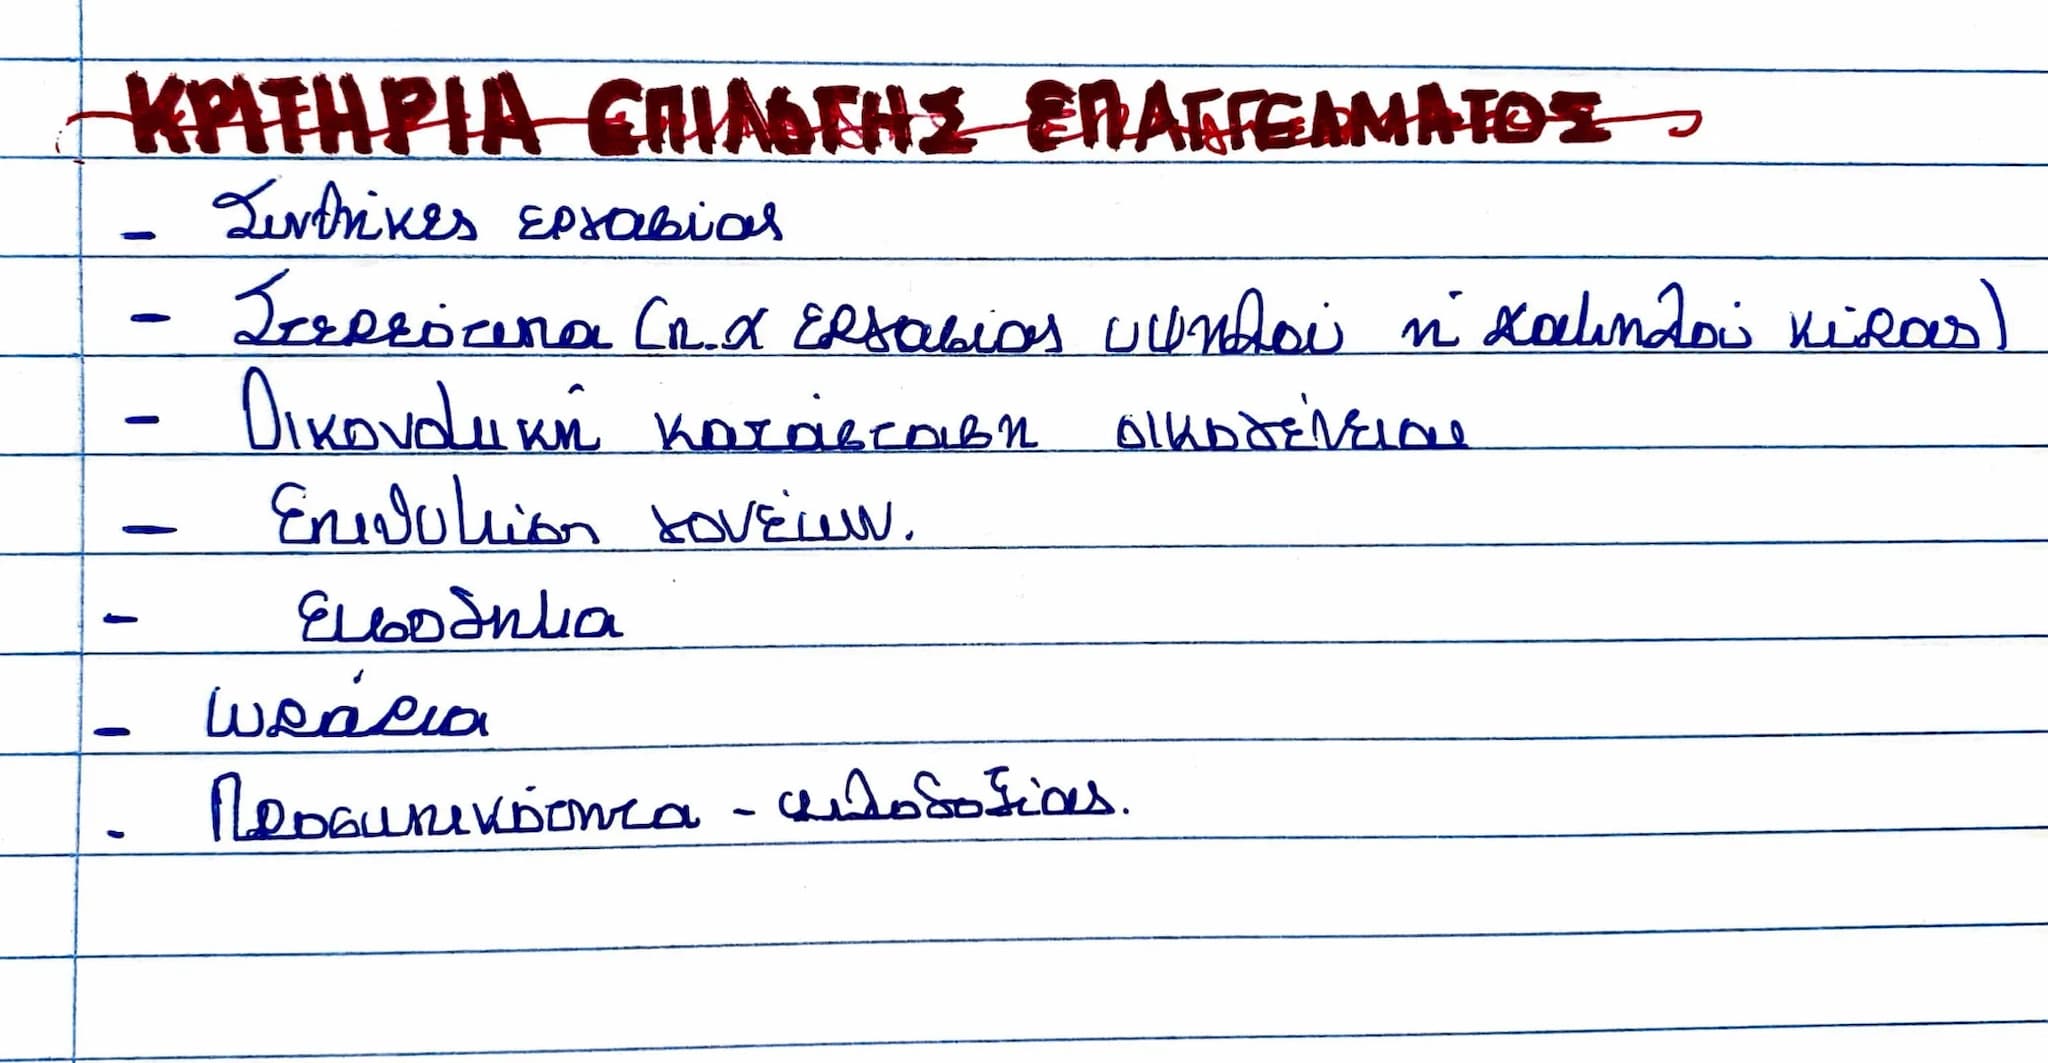 ΚΡΙΤΗΡΙΑ ΕΠΙΛΟΓΗΣ ΕΠΑΓΓΕΛΜΑΤΟΣ
- Συνθήκες εργασίας
- Στερεότυπα (π.χ εργασίας υψηλού ή χαμηλού κύρας)
- Οικονομική κατάσταση οικογένειας
- Επιθυμίση γονέιων.
- Εισοδημα
- Ωράρια
- Προσωπικότητα - φιλοδοξίας.